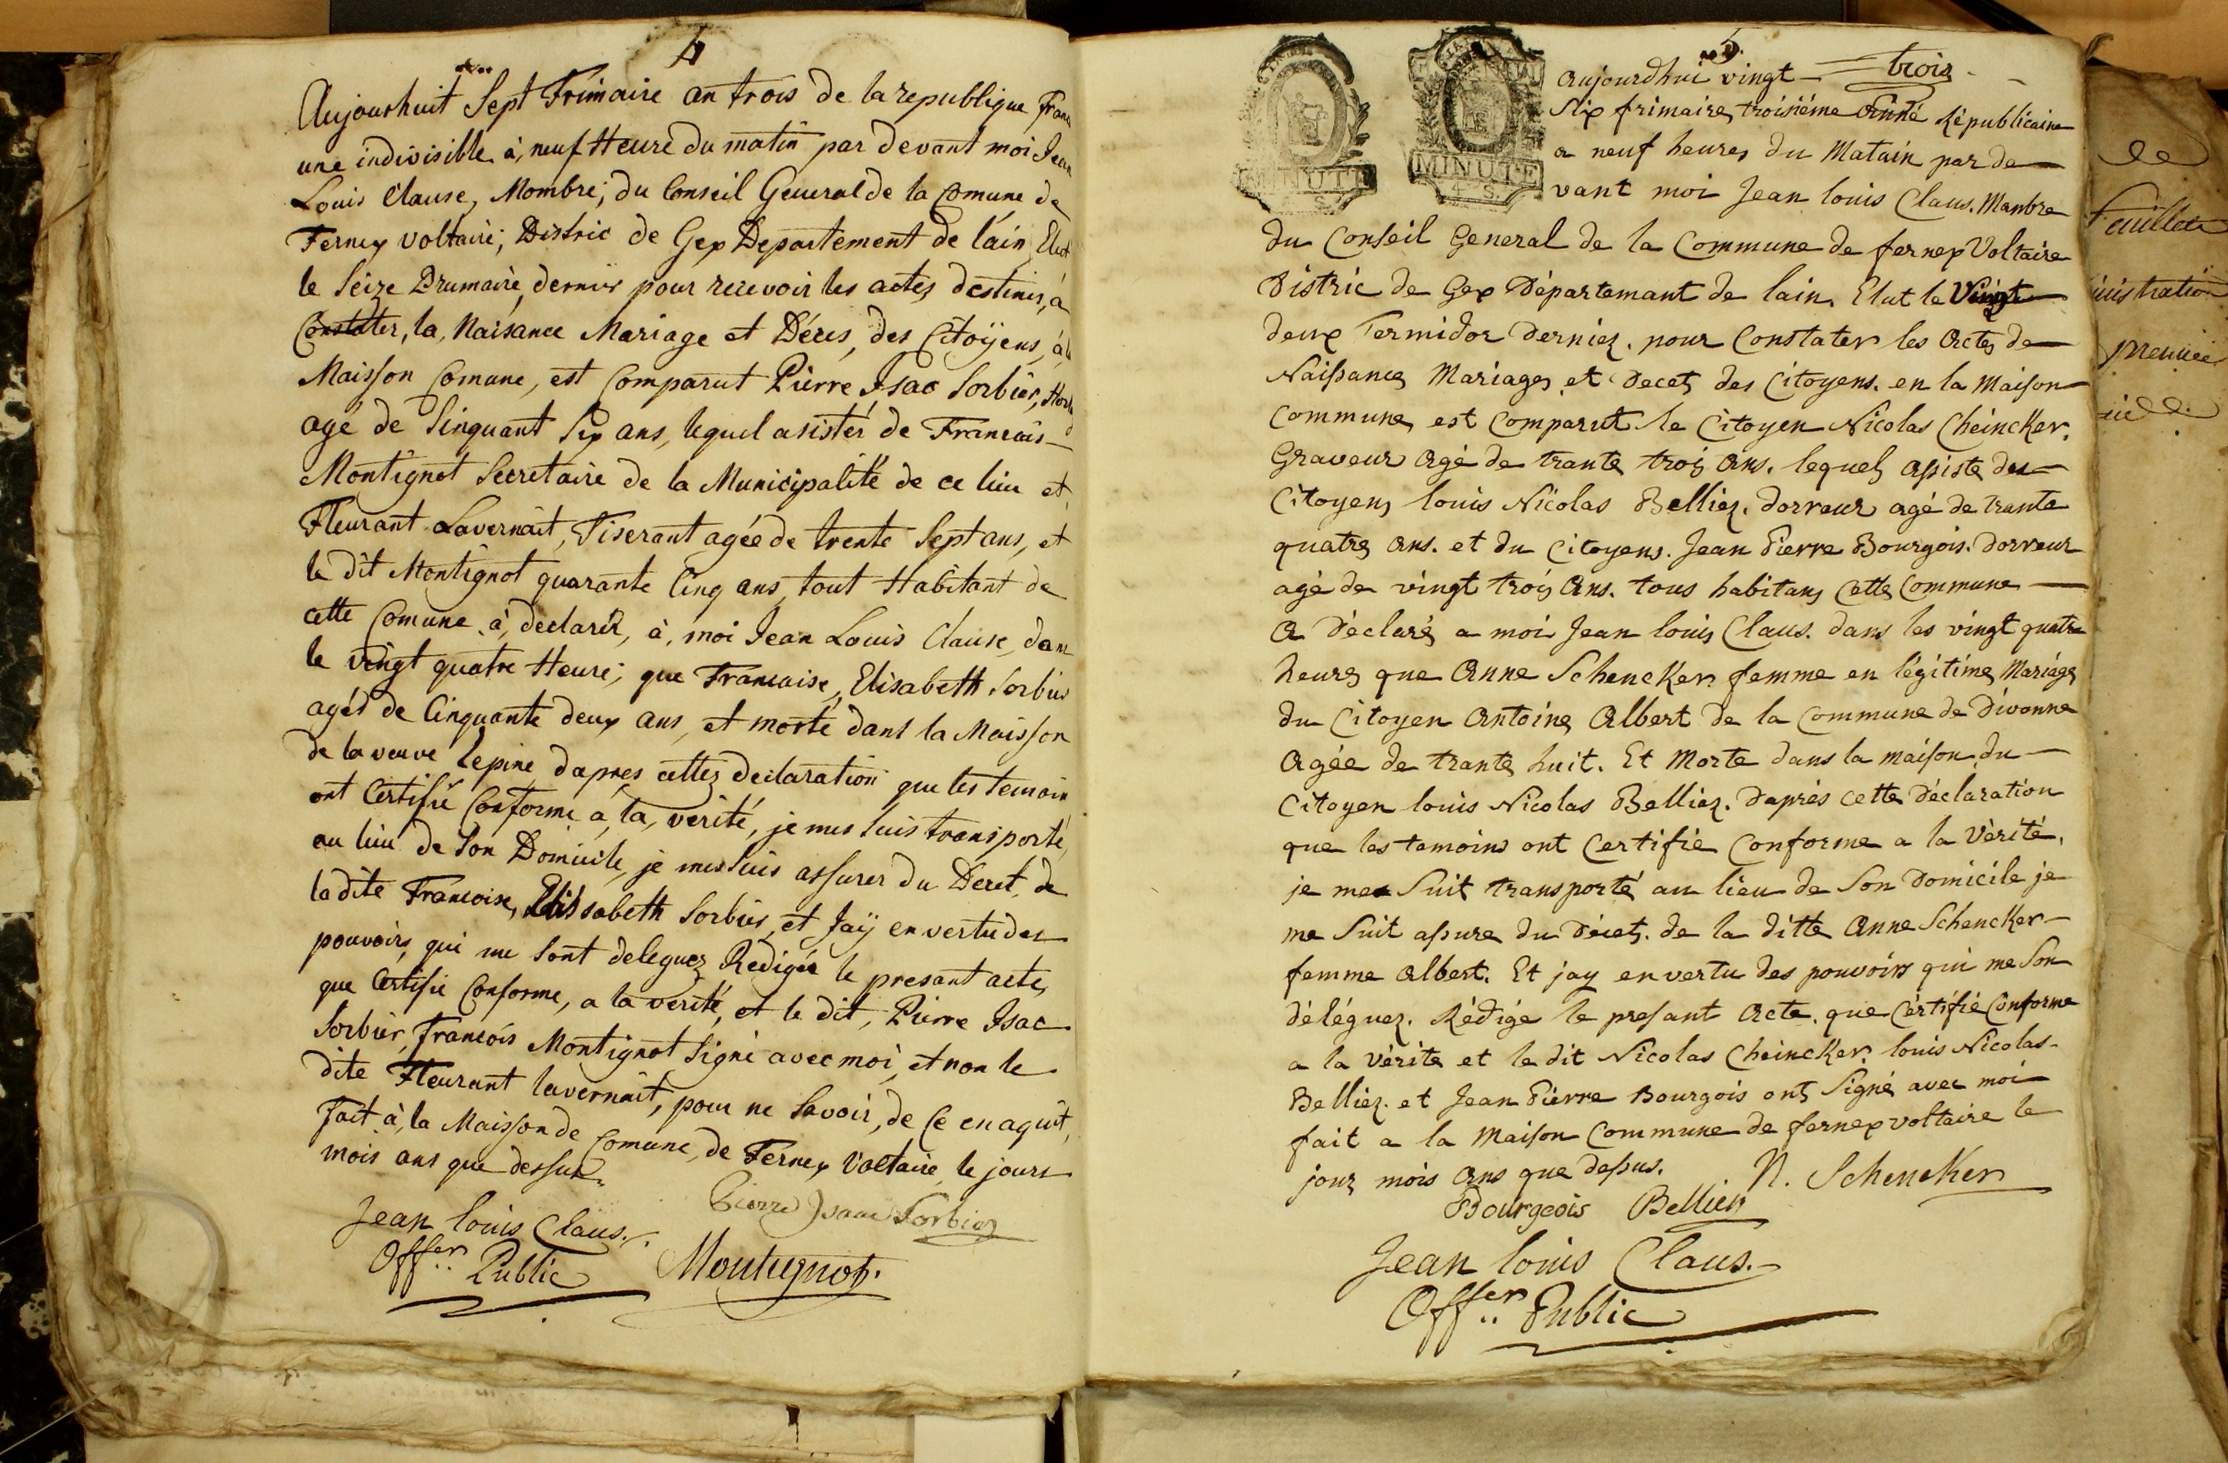 4
Aujourhuit Sept Frimaire an trois de la republique
une indivisible à, neuf Heure du matin par devant moi Jean
Louis Clause, Mombre, du Conseil General de la Comune de
Ferney voltaire, Distric de Gex Departement de l'ain, Elut
le Seize Brumaire, dernier pour recevoir les actes destines, à
Constater, la, Naisance Mariage et Déces, des Citoÿens, à la
Maisson Comune, est Comparut Pierre Isac Sorbier,
agé de Sinquant Six ans, lequel asistér de Francois
Montignot Secretaire de la Municipalité de ce lieu et
Fleurant Lavernait, Tiserant agée de trente Sept ans, et
le dit Montignot quarante Cinq ans, tout Habitant de
cette Comune à, declarér, à, moi Jean Louis Clause, dans
le vingt quatre Heure, que Francaise, Elisabeth Sorbier
agés de Cinquante deux ans, et morte dans la Maisson
de la veuve lepine, dapres cettes declaration que les temoin
ont Certifié Conforme à, la, verité, je mes suis transporté,
au lieu de Son Domicile, je mes Suis assurer du Decet, de
ladite Francoise, Elissabeth Sorbier, et Jaÿ en vertu des
pouvoirs, qui me Sont deleguez Redigér le presant acte,
que Certifié Conforme, a la verité, et le dit, Pierre Isac
Sorbier, Francois Montignot Signé avec moi, et non le
dite Fleurant lavernait, pour ne Savoir, de Ce enaquit,
fait à, la Maisson de Comune, de Ferney Voltaire, le jours
mois ans que dessus.
Jean louis Claus.
Pierre Isaac Sorbier
Offer Public
Montignot.
5.
MINUTE
MINUTE
4. S.
Aujourdhui vingt trois
Six frimaire, troisiéme Anné Républicaine
a neuf heures du Matain par de
vant moi Jean louis Claus. Manbre
du Conseil General de la Commune de fernex Voltaire
District de Gex Département de lain. Elut le Vingt
deux Termidor Derniez. pour Constater les Actes de
Naissances Mariages et Decets des Citoyens. en la Maison
Commune, est Comparut le Citoyen Nicolas Cheincker.
Graveur agé de trante trois ans. lequels assisté des
Citoyens louis Nicolas Belliez. dorreur agé de trante
quatre ans. et du Citoyens. Jean Pierre Bourgois. Dorreur
agé de vingt trois Ans. tous habitans Cette Commune
a Déclaré a moi Jean louis Claus. dans les vingt quatre
heures que Anne Schencker femme en légitime, Mariage
du Citoyen Antoine Albert de la Commune de Divonne
Agée de trante huit. Et Morte dans la maison du
Citoyen louis Nicolas Belliez. Daprés cette Déclaration
que les temoins ont Certifié Conforme a la Vérité,
je me Suit transporté au lieu de Son Domicile je
me Suit assure du Décet. de la ditte Anne Schencker
femme Albert. Et jay en vertu des pouvoirs qui me Son
déléguez. Rédigé le presant Acte. que Certifié Conforme
a la vérité et le dit Nicolas Cheincker. louis Nicolas
Belliez. et Jean Pierre Bourgois ont Signé avec moi
fait a la Maison Commune de fernex voltaire le
jour mois Ans que Dessus.
N. Schencker
Bourgeois Bellier
Jean louis Claus.
Offer Public
de
Feuillets